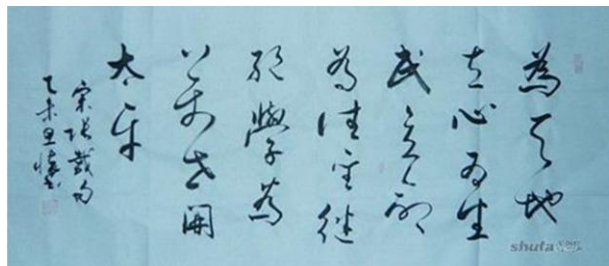 為天地
立心為生
民立命
為往聖繼
絕學為
萬世開
太平
宋張載句
乙未
shufa